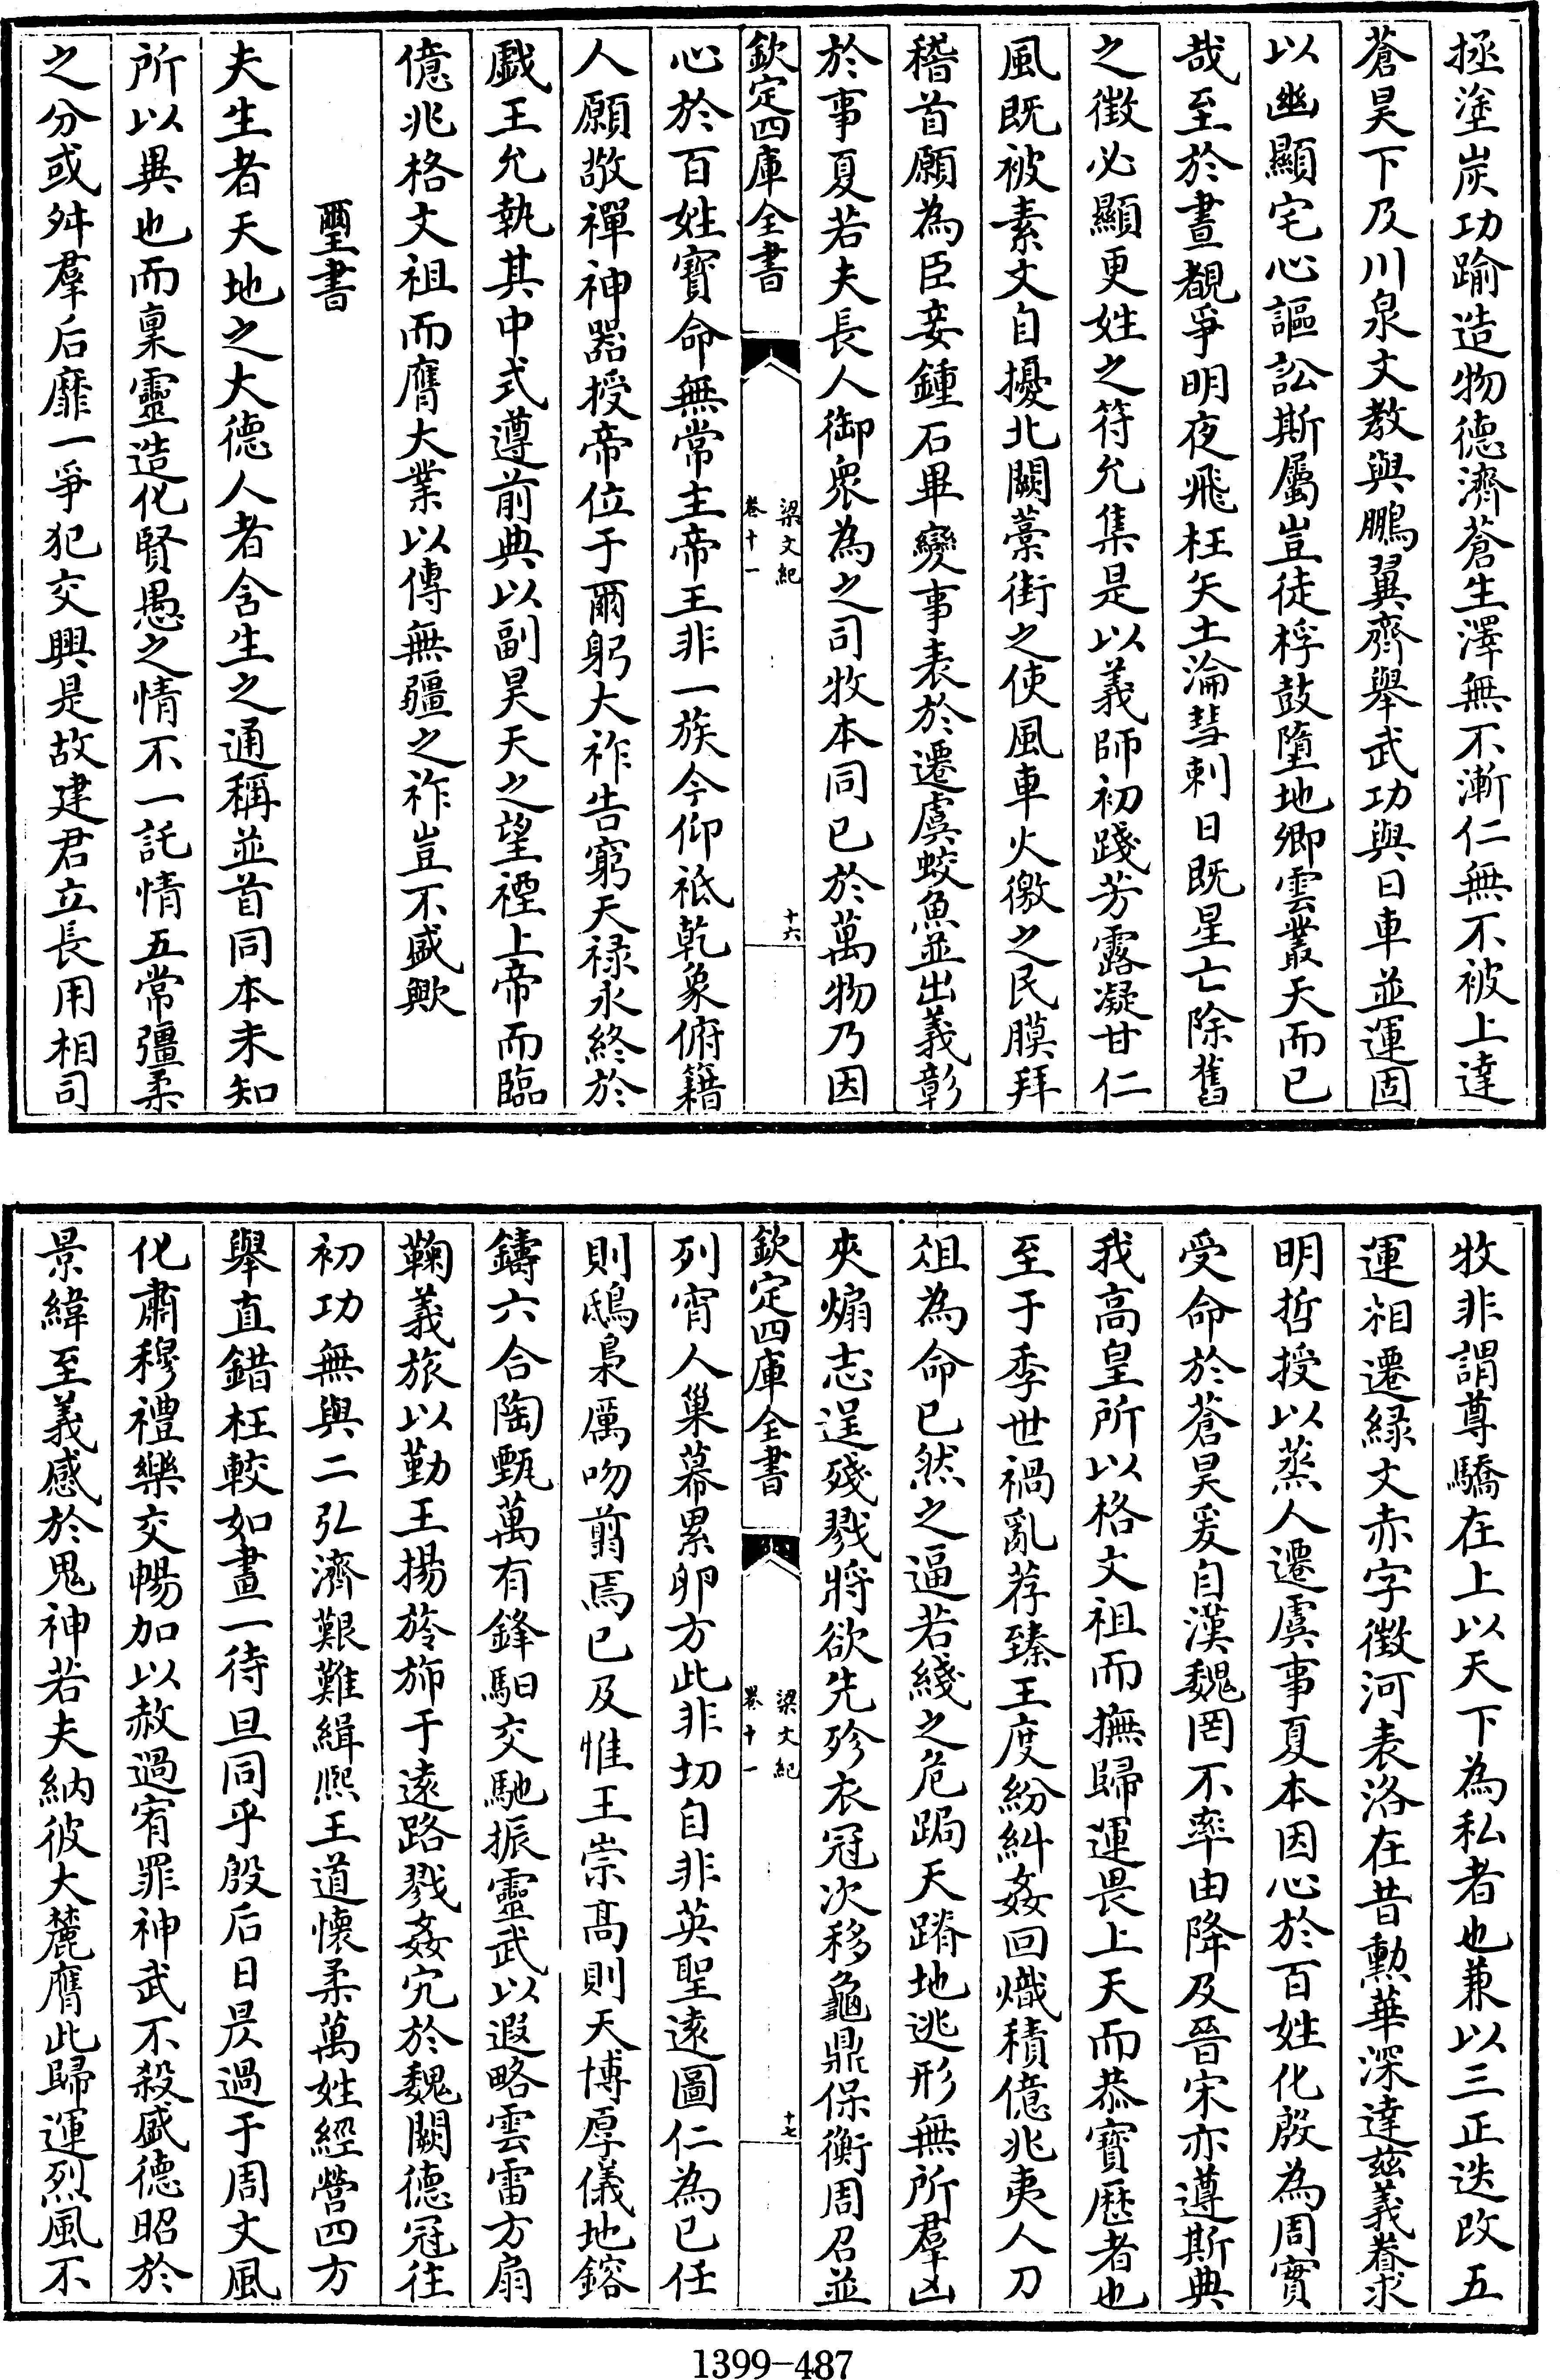 拯塗炭功踰造物德濟蒼生澤無不漸仁無不被上達
蒼昊下及川泉文教與鵬翼齊舉武功與日車並運固
以幽顯宅心謳訟斯屬豈徒桴鼓墮地卿雲叢天而已
哉至於晝覩爭明夜飛枉矢土淪彗刺日既星亡除舊
之徵必顯更姓之符允集是以義師初踐芳露凝甘仁
風既被素文自擾北闕藁街之使風車火徼之民膜拜
稽首願為臣妾鍾石畢變事表於遷虞蛟魚並出義彰
於事夏若夫長人御衆為之司牧本同已於萬物乃因
欽定四庫全書
梁文紀
卷十一
十六
心於百姓寶命無常主帝王非一族今仰祗乾象俯籍
人願敬禪神器授帝位于爾躬大祚告窮天禄永終於
戲王允執其中式遵前典以副昊天之望禋上帝而臨
億兆格文祖而膺大業以傳無疆之祚豈不盛歟
璽書
夫生者天地之大德人者含生之通稱並首同本未知
所以異也而稟靈造化賢愚之情不一託情五常彊柔
之分或舛羣后靡一爭犯交興是故建君立長用相司
牧非謂尊驕在上以天下為私者也兼以三正迭改五
運相遷緑文赤字徵河表洛在昔勲華深達兹義眷求
明哲授以蒸人遷虞事夏本因心於百姓化殷為周實
受命於蒼昊爰自漢魏罔不率由降及晉宋亦遵斯典
我高皇所以格文祖而撫歸運畏上天而恭寶歴者也
至于季世禍亂荐臻王度紛糾姦回熾積億兆夷人刀
俎為命已然之逼若綫之危跼天蹐地逃形無所羣凶
夾煽志逞殘戮將欲先殄衣冠次移龜鼎保衡周召並
欽定四庫全書
梁文紀
卷十一
十七
列宵人巢幕累卵方此非切自非英聖遠圖仁為已任
則鴟梟厲吻翦焉已及惟王崇髙則天博厚儀地鎔
鑄六合陶甄萬有鋒馹交馳振靈武以遐略雲雷方扇
鞠義旅以勤王揚旍斾于遠路戮姦宄於魏闕德冠往
初功無與二弘濟艱難緝熙王道懷柔萬姓經營四方
舉直錯枉較如畫一待旦同乎殷后日昃過于周文風
化肅穆禮樂交暢加以赦過宥罪神武不殺盛德昭於
景緯至義感於鬼神若夫納彼大麓膺此歸運烈風不
1399-487